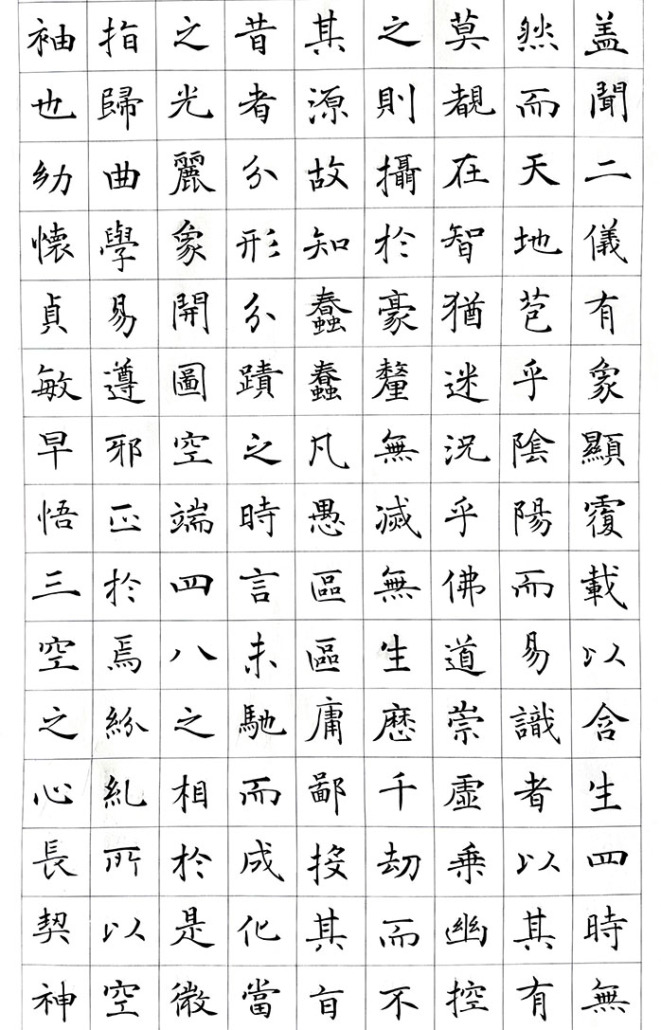 盖聞二儀有象顯覆載以含生四時無
然而天地苞乎陰陽而易識者以其有
莫覩在智猶迷況乎佛道崇虛乗幽控
之則攝於豪釐無滅無生歷千劫而不
其源故知蠢蠢凡愚區區庸鄙投其旨
昔者分形分蹟之時言未馳而成化當
之光麗象開圖空端四八之相於是微
指歸曲學易遵邪正於焉紛糺所以空
袖也幼懷貞敏早悟三空之心長契神